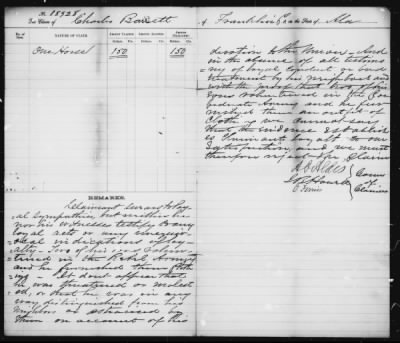 No. 18528
The Claim of Charles Barrett of Franklin Co & in the State of Ala
No. of Item.
NATURE OF CLAIM
Amount Claimed
Amount Allowed
Amount Disallowed
Dollars Cts.
Dollars Cts.
Dollars Cts.
One Horse 150 150
REMARKS.
Claimant swears to loy-
al sympathies but neither he
nor his witnesses testify to any
loyal acts or any
indications of loy-
alty. Two of his sons volun-
teered in the Rebel Army
and he furnished them cloth-
ing. It dont appear that
he was threatened or molest-
ed, or that he was in any
way distinguished from his
neighbors or ostracised by
them on account of his
devotion to the Union. And
in the absence of all testimo-
ny of loyal conduct or bad
treatment by his neighbors and
with the proof that two of his
sons volunteered in the Con-
federate Army and he fur-
nished them an outfit of
cloth we cannot say
that the evidence establish-
es claimants loyalty to our
satisfaction, and we must
therefore reject this claim
A O Aldis
O Ferriss
Coms
of
Claims